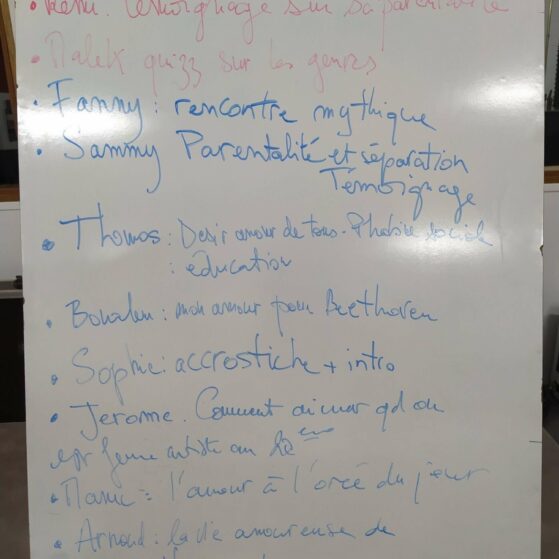 témoignage sur sa parentalité
• Malek quizz sur les genres
• Fanny : rencontre mythique
• Sammy Parentalité et séparation
Témoignage
• Thomas : Desir amour de tous. sociale
: éducation
• Boualem : mon amour pour Beethoven
• Sophie : accrostiche + intro
• Jerome. Comment aimer qd on
femme artiste au
• l'amour à l'orée du jour
• Arnaud : la vie amoureuse de